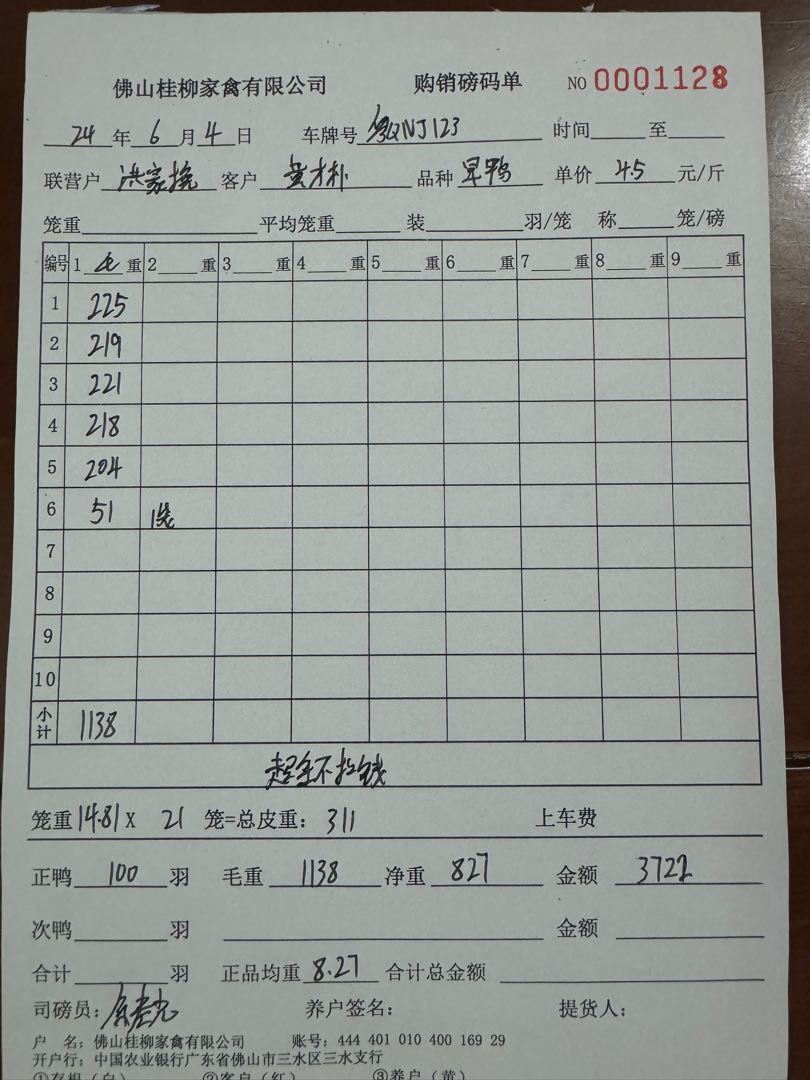 佛山桂柳家禽有限公司 购销磅码单 NO 0001128
24 年 6 月 4 日 车牌号 粤QNJ123 时间 至
联营户 洪家挽 客户 黄才朴 品种 旱鸭 单价 4.5 元/斤
笼重 平均笼重 装 羽/笼 称 笼/磅
编号 1 毛 重 2 重 3 重 4 重 5 重 6 重 7 重 8 重 9 重
1 225
2 219
3 221
4 218
5 204
6 51 1笼
7
8
9
10
小计 1138
超全不扣钱
笼重 14.81 X 21 笼=总皮重: 311 上车费
正鸭 100 羽 毛重 1138 净重 827 金额 3722
次鸭 羽 金额
合计 羽 正品均重 8.27 合计总金额
司磅员: 养户签名: 提货人:
户 名: 佛山桂柳家禽有限公司 账号: 444 401 010 400 169 29
开户行: 中国农业银行广东省佛山市三水区三水支行
①存根(白) ②客户(红) ③养户(黄)